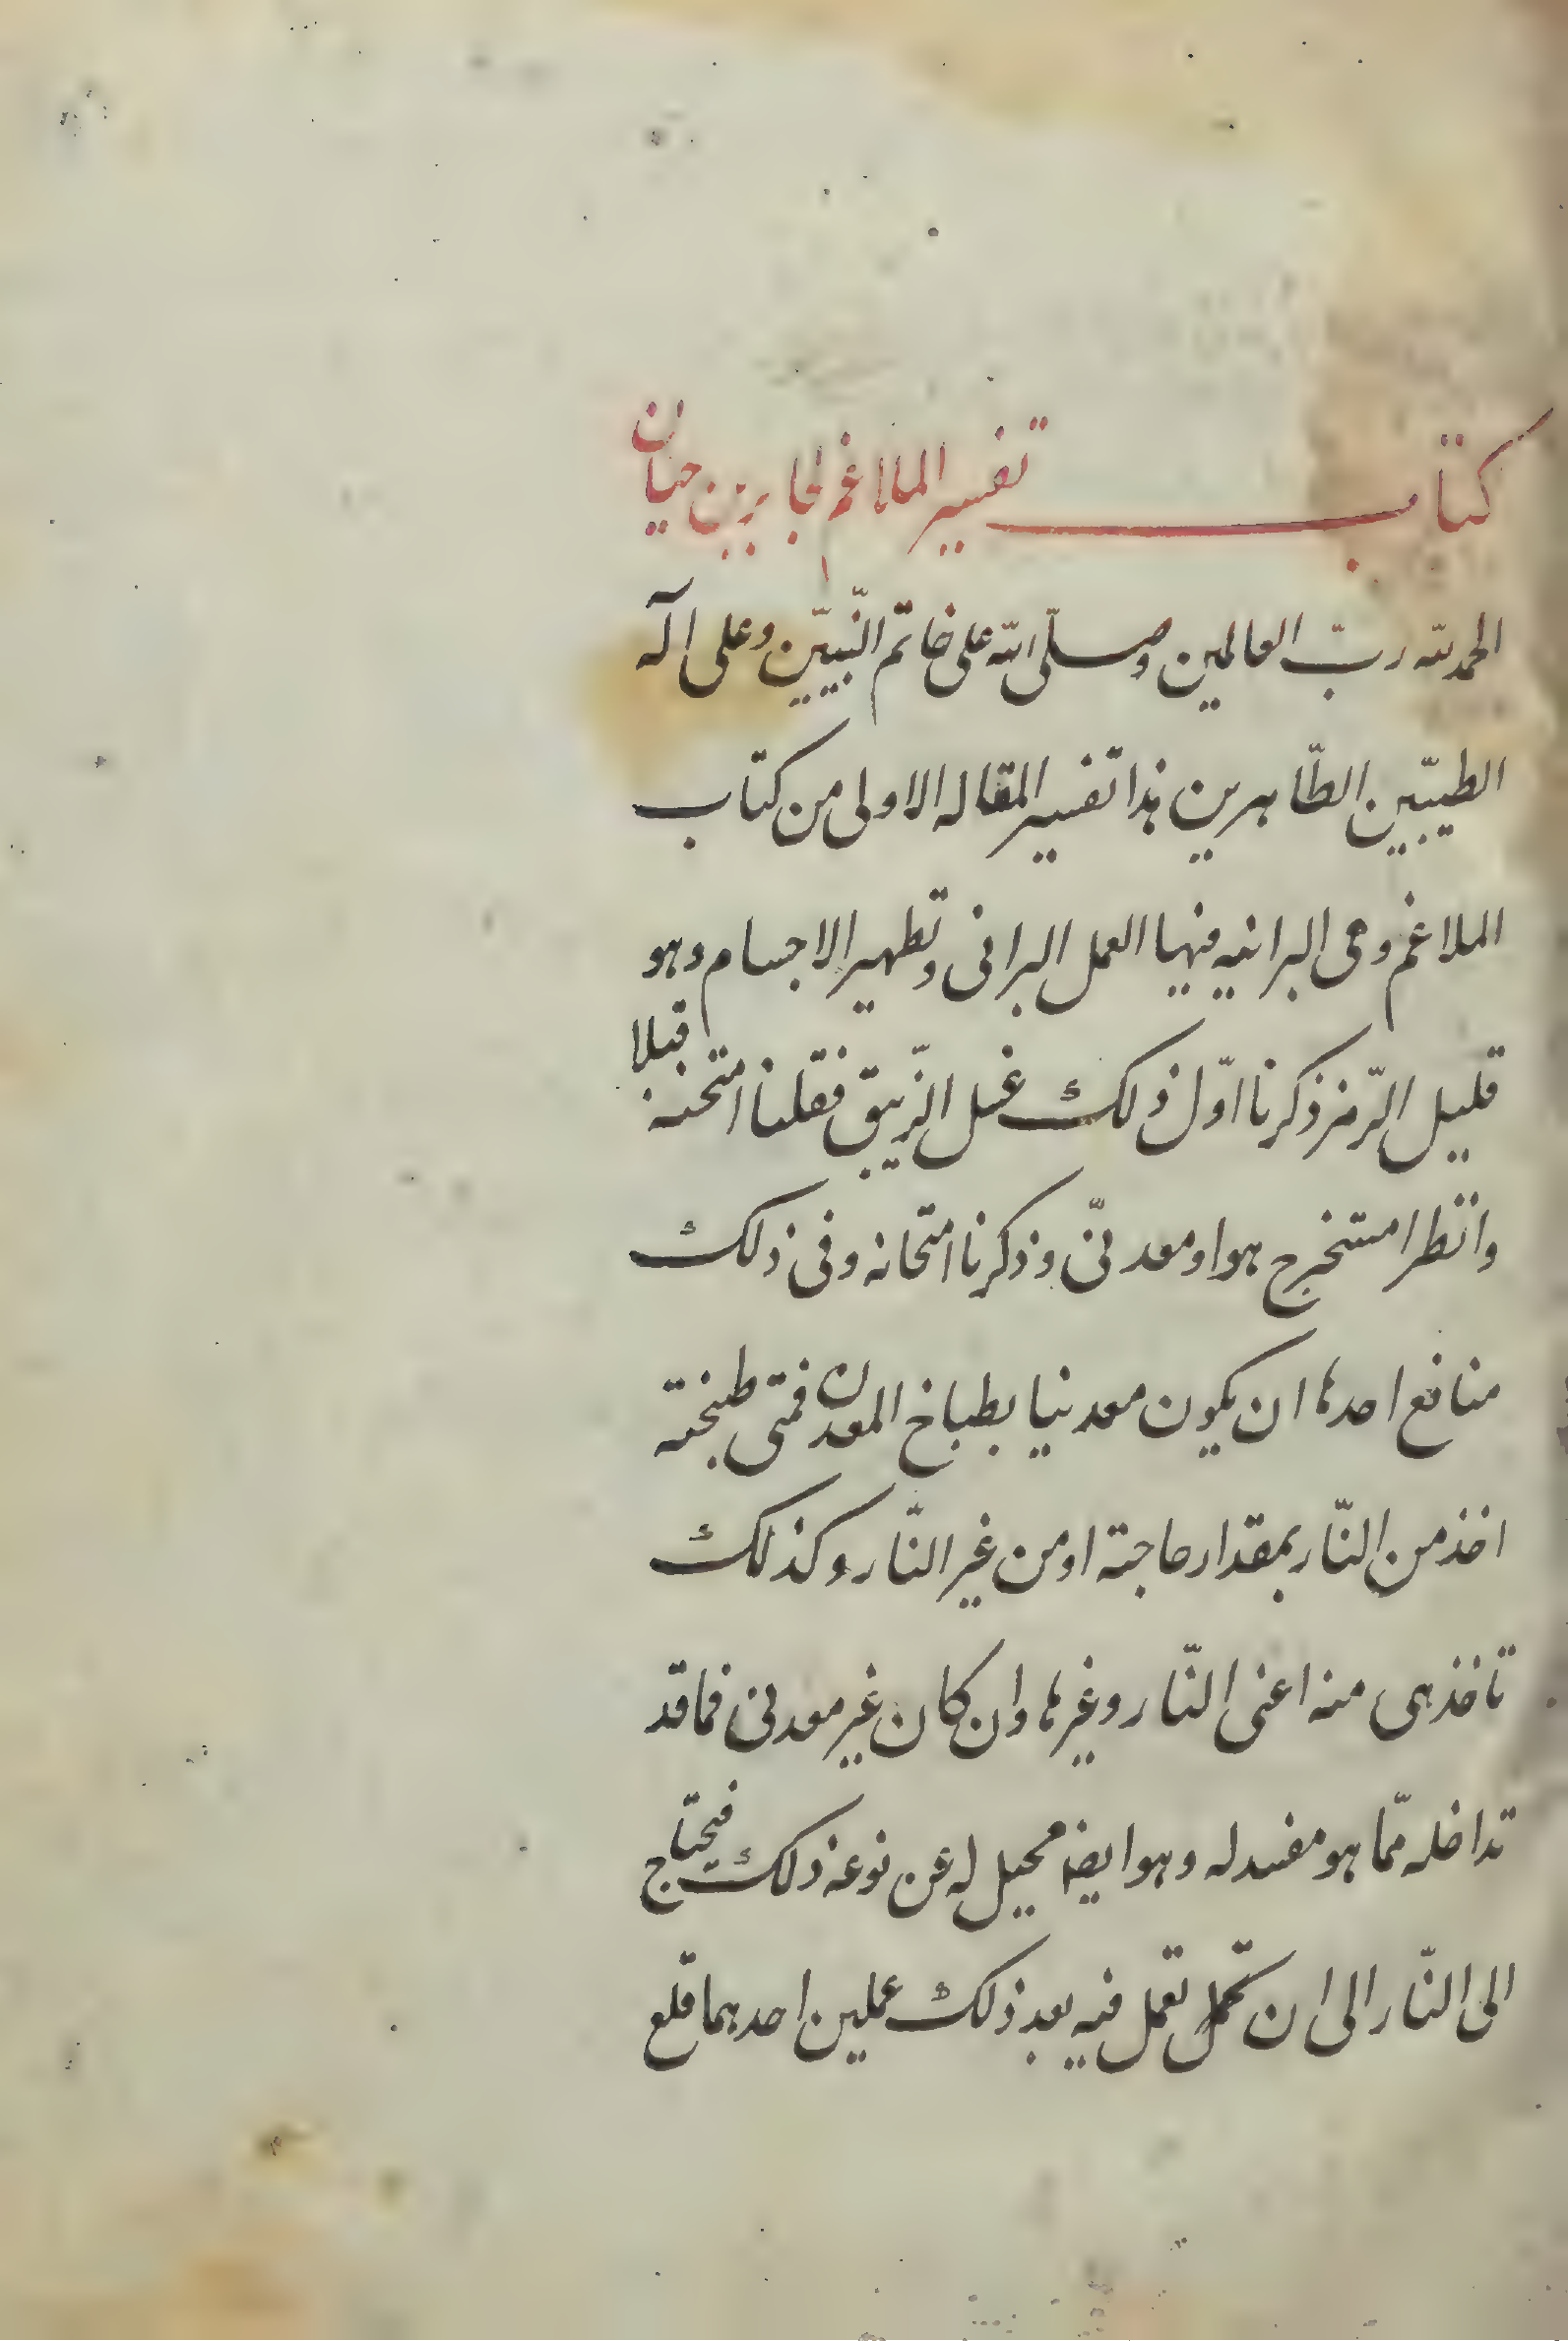 كتاب تفسير الملاغم لجابر بن حيان
الحمد لله ربّ العالمين وصلّى الله على خاتم النّبيّين وعلى اله
الطيّبين الطّاهرين هذا تفسير المقاله الاولى من كتاب
الملاغم وهى البرانيه فيها العمل البرانى وتطهير الاجسام وهو
قليل الرّمز ذكرنا اوّل ذلك غسل الزّيبق فقلنا امتحنه قبلا
وانظر امستخرج هو او معدنىّ وذكرنا امتحانه وفى ذلك
منافع احدها ان يكون معدنيا بطباخ المعدن فمتى طبخته
اخذ من النّار بمقدار حاجته او من غير النّار وكذلك
تاخذ هى منه اعنى النّار وغيرها وان كان غير معدنى فما قد
تداخله ممّا هو مفسد له وهو ايضا محيل له عن نوعه ذلك فيحتاج
الى النّار الى ان تكمل تعمل فيه بعد ذلك عملين احدهما قلع